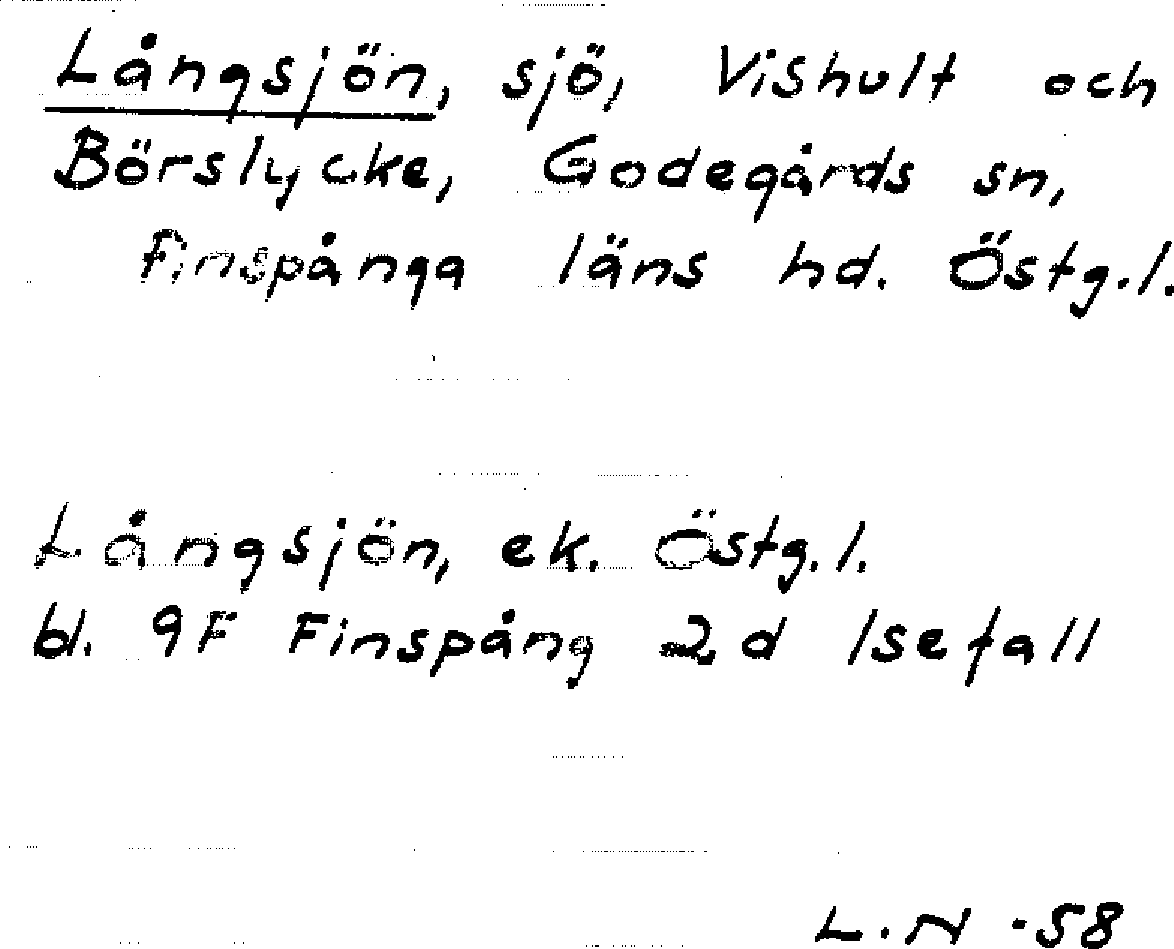 Långsjön, sjö, Vishult och
Börslycke, Godegårds sn,
Finspånga läns hd. Östg.l.
Långsjön, ek. Östg.l.
bl. 9F Finspång 2d Isefall
L.N -58